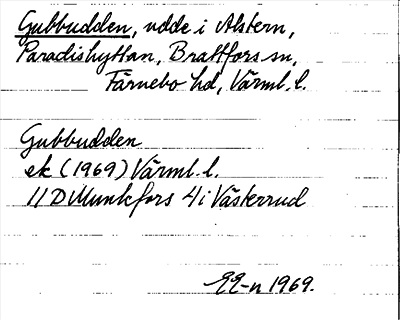 Gubbudden, udde i Alstern,
Paradishyttan, Brattfors sn,
Färnebo hd, Värml. l.
Gubbudden
ek (1969) Värml. l.
11D Munkfors 4i Västerrud
EE-n 1969.